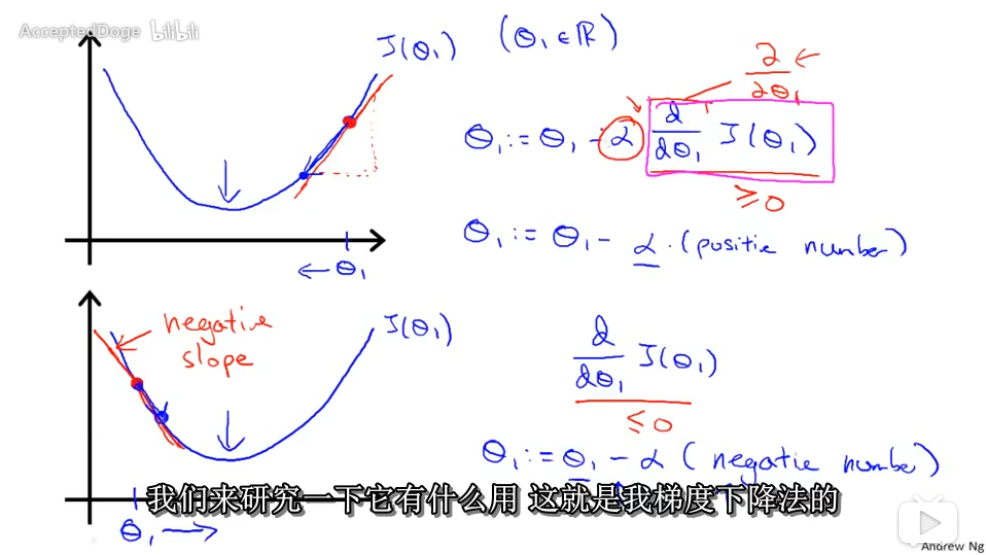 AcceptedDoge bilibili
J(θ₁) (θ₁ ∈ ℝ)
∂/∂θ₁ ←
θ₁ := θ₁ - α d/dθ₁ J(θ₁)
≥ 0
θ₁ := θ₁ - α · (positie number)
← θ₁
negative slope
J(θ₁)
d/dθ₁ J(θ₁)
≤ 0
θ₁ := θ₁ - α (negatie number)
我们来研究一下它有什么用 这就是我梯度下降法的
θ₁ →
Andrew Ng